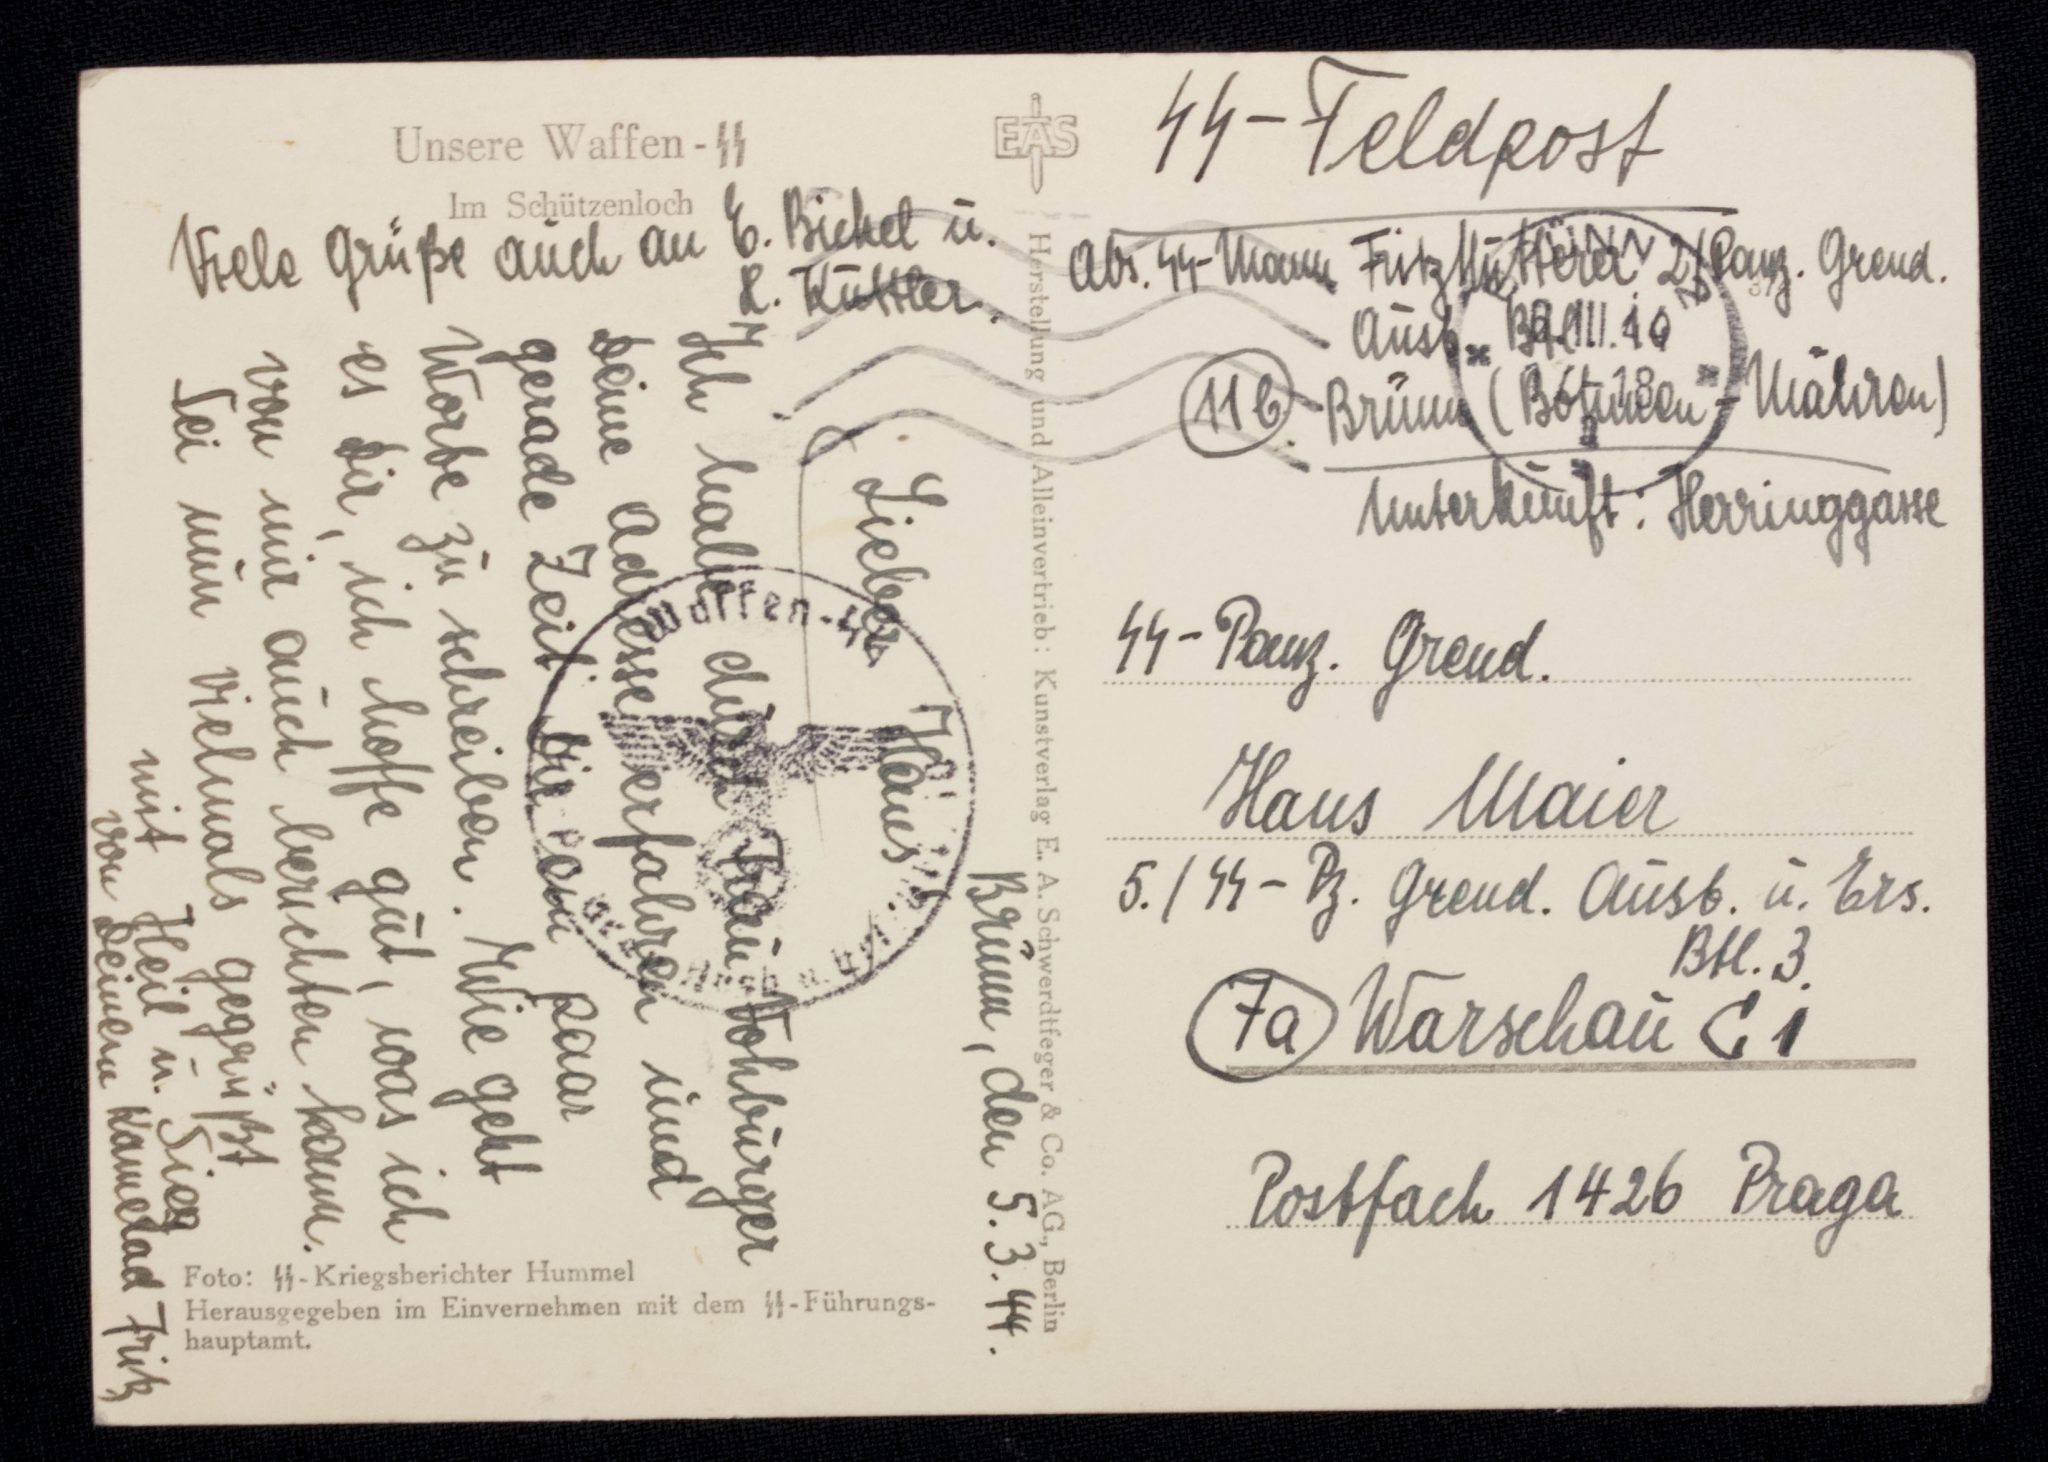 Unsere Waffen-SS
Im Schützenloch
Viele Grüße auch an E. Bickel u.
K. Kuttler.
Brünn, den 5.3.44.
Lieber Hans!
Ich habe durch Frau Vohburger
Deine Adresse erfahren und
gerade Zeit Dir ein paar
Worte zu schreiben. Wie geht
es Dir, ich hoffe gut, was ich
von mir auch berichten kann.
Sei nun vielmals gegrüßt
mit Heil u. Sieg
von Deinem Kamerad Fritz
Waffen-SS
Foto: SS-Kriegsberichter Hummel
Herausgegeben im Einvernehmen mit dem SS-Führungs-
hauptamt.
EAS
Herstellung und Alleinvertrieb: Kunstverlag E. A. Schwerdtfeger & Co. AG., Berlin
SS-Feldpost
Abs. SS-Mann Fritz 2/Panz. Grend.
Ausb. Btl.
11b Brünn (Böhmen-Mähren)
Unterkunft: Herringgasse
SS-Panz. Grend.
Hans Maier
5./SS-Pz. Grend. Ausb. u. Ers.
Btl. 3
7a Warschau C 1
Postfach 1426 Praga